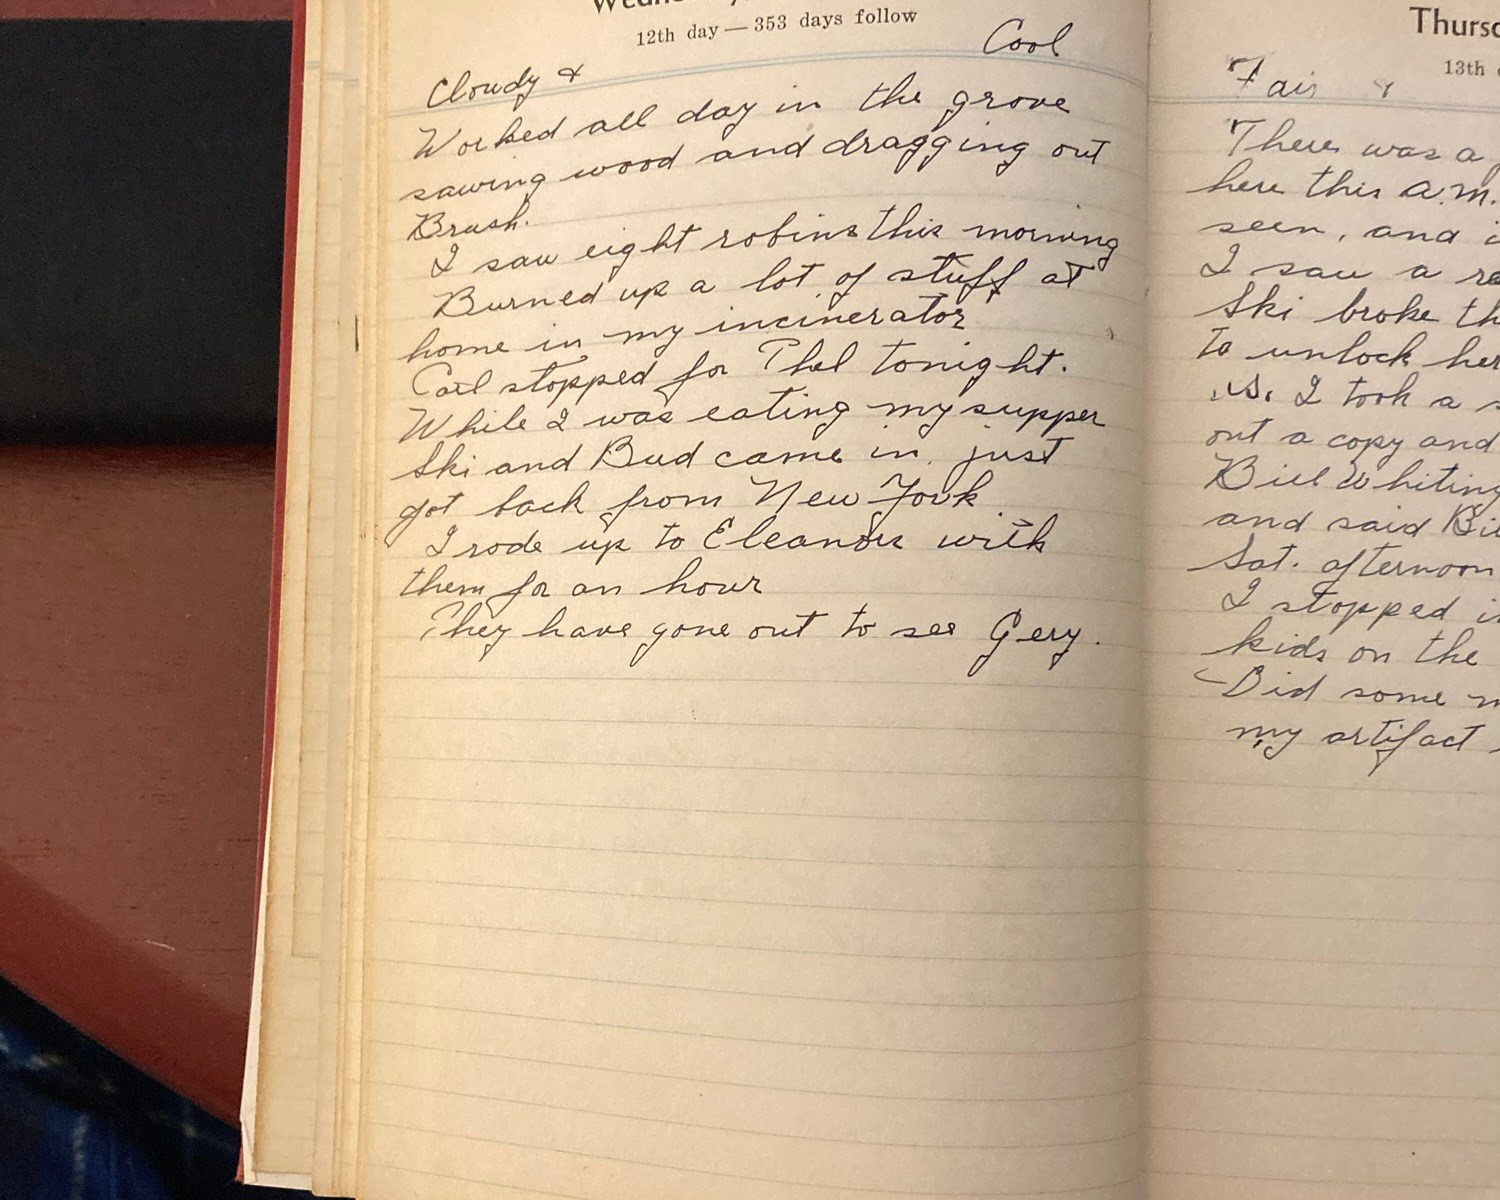 12th day — 353 days follow
Cloudy & Cool
Worked all day in the grove
sawing wood and dragging out
Brush.
I saw eight robins this morning
Burned up a lot of stuff at
home in my incinerator
Carl stopped for Phel tonight.
While I was eating my supper
Ski and Bud came in, just
got back from New York.
I rode up to Eleanors with
them for an hour
They have gone out to see Gery.
Thurs
13th
Fair &
There was a
here this A.M.
seen, and
I saw a
Ski broke
to unlock her
us. I took a
out a copy and
Bill Whiting
and said
Sat. afternoon
I stopped
kids on the
Did some
my artifact